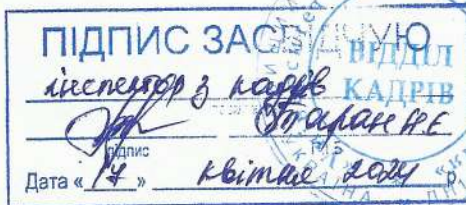 ПІДПИС ЗАСВІДЧУЮ
ВІДДІЛ
КАДРІВ
інспектор з кадрів
Таран Н Є
підпис
Дата « 17 » квітня 2024 р.
УКРАЇНА